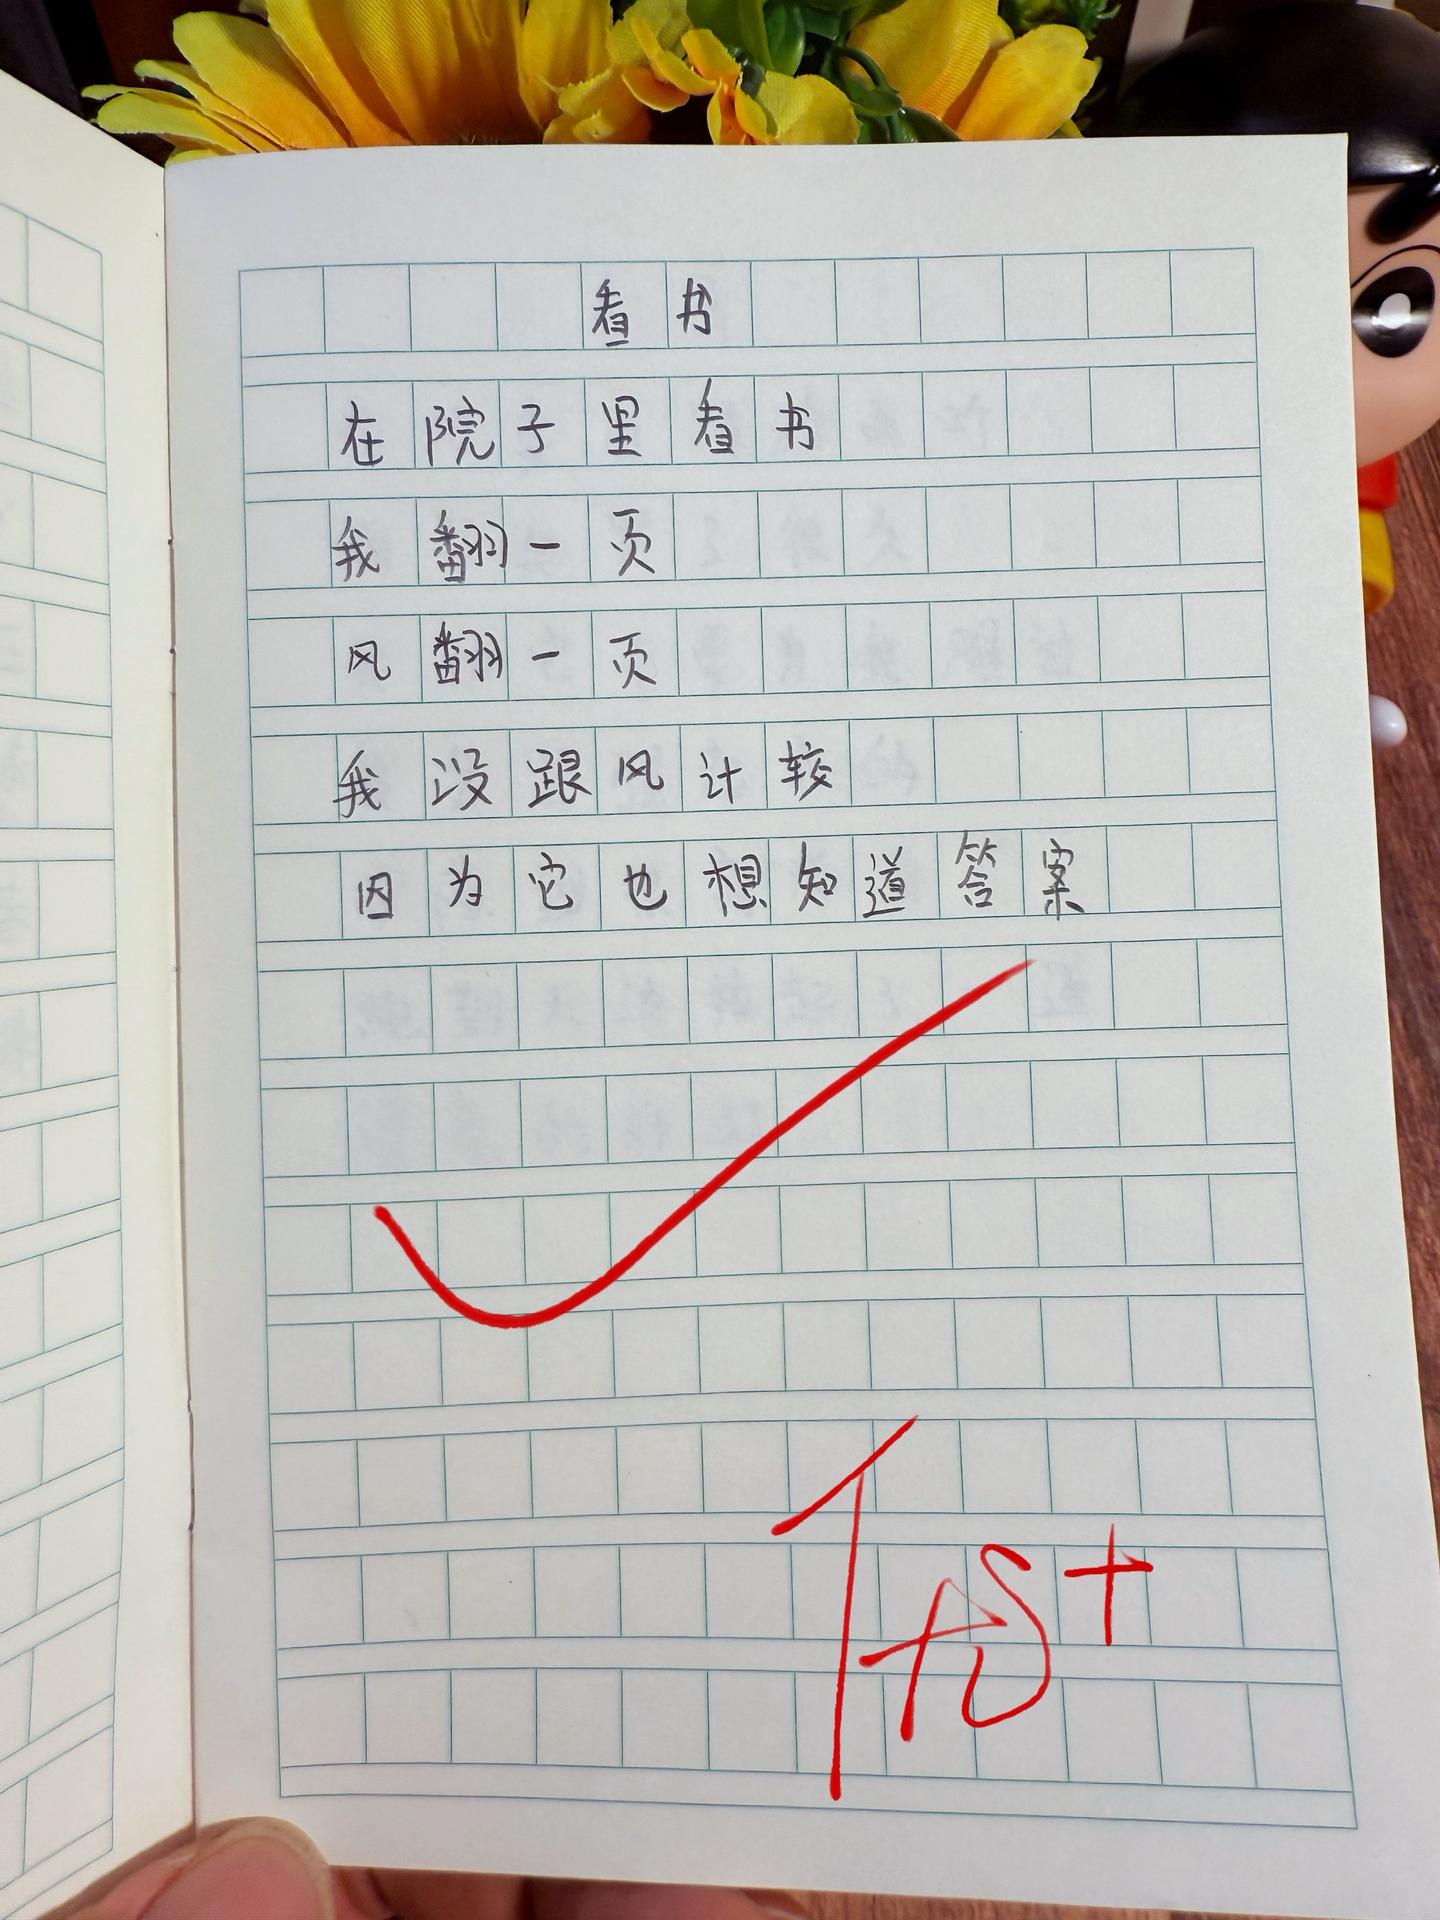 看书
在院子里看书
我翻一页
风翻一页
我没跟风计较
因为它也想知道答案